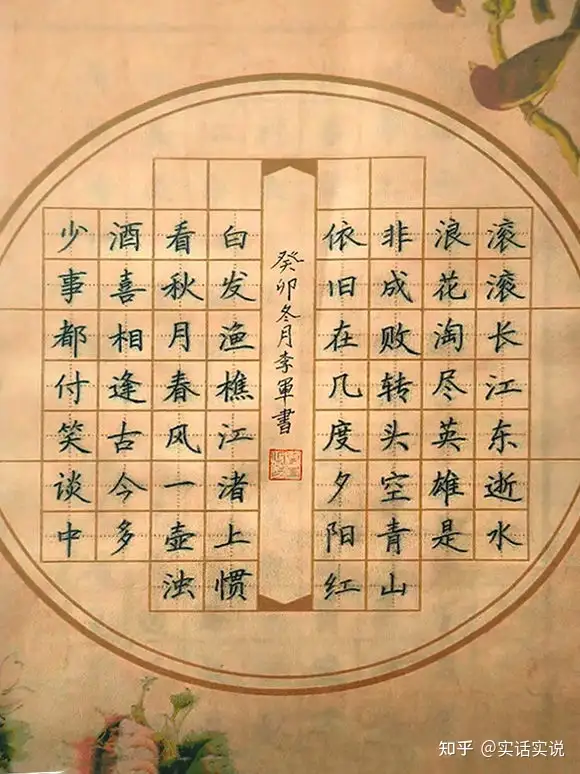 滚滚长江东逝水
浪花淘尽英雄是
非成败转头空青山
依旧在几度夕阳红
癸卯冬月李軍書
白发渔樵江渚上惯
看秋月春风一壶浊
酒喜相逢古今多
少事都付笑谈中
知乎 @实话实说